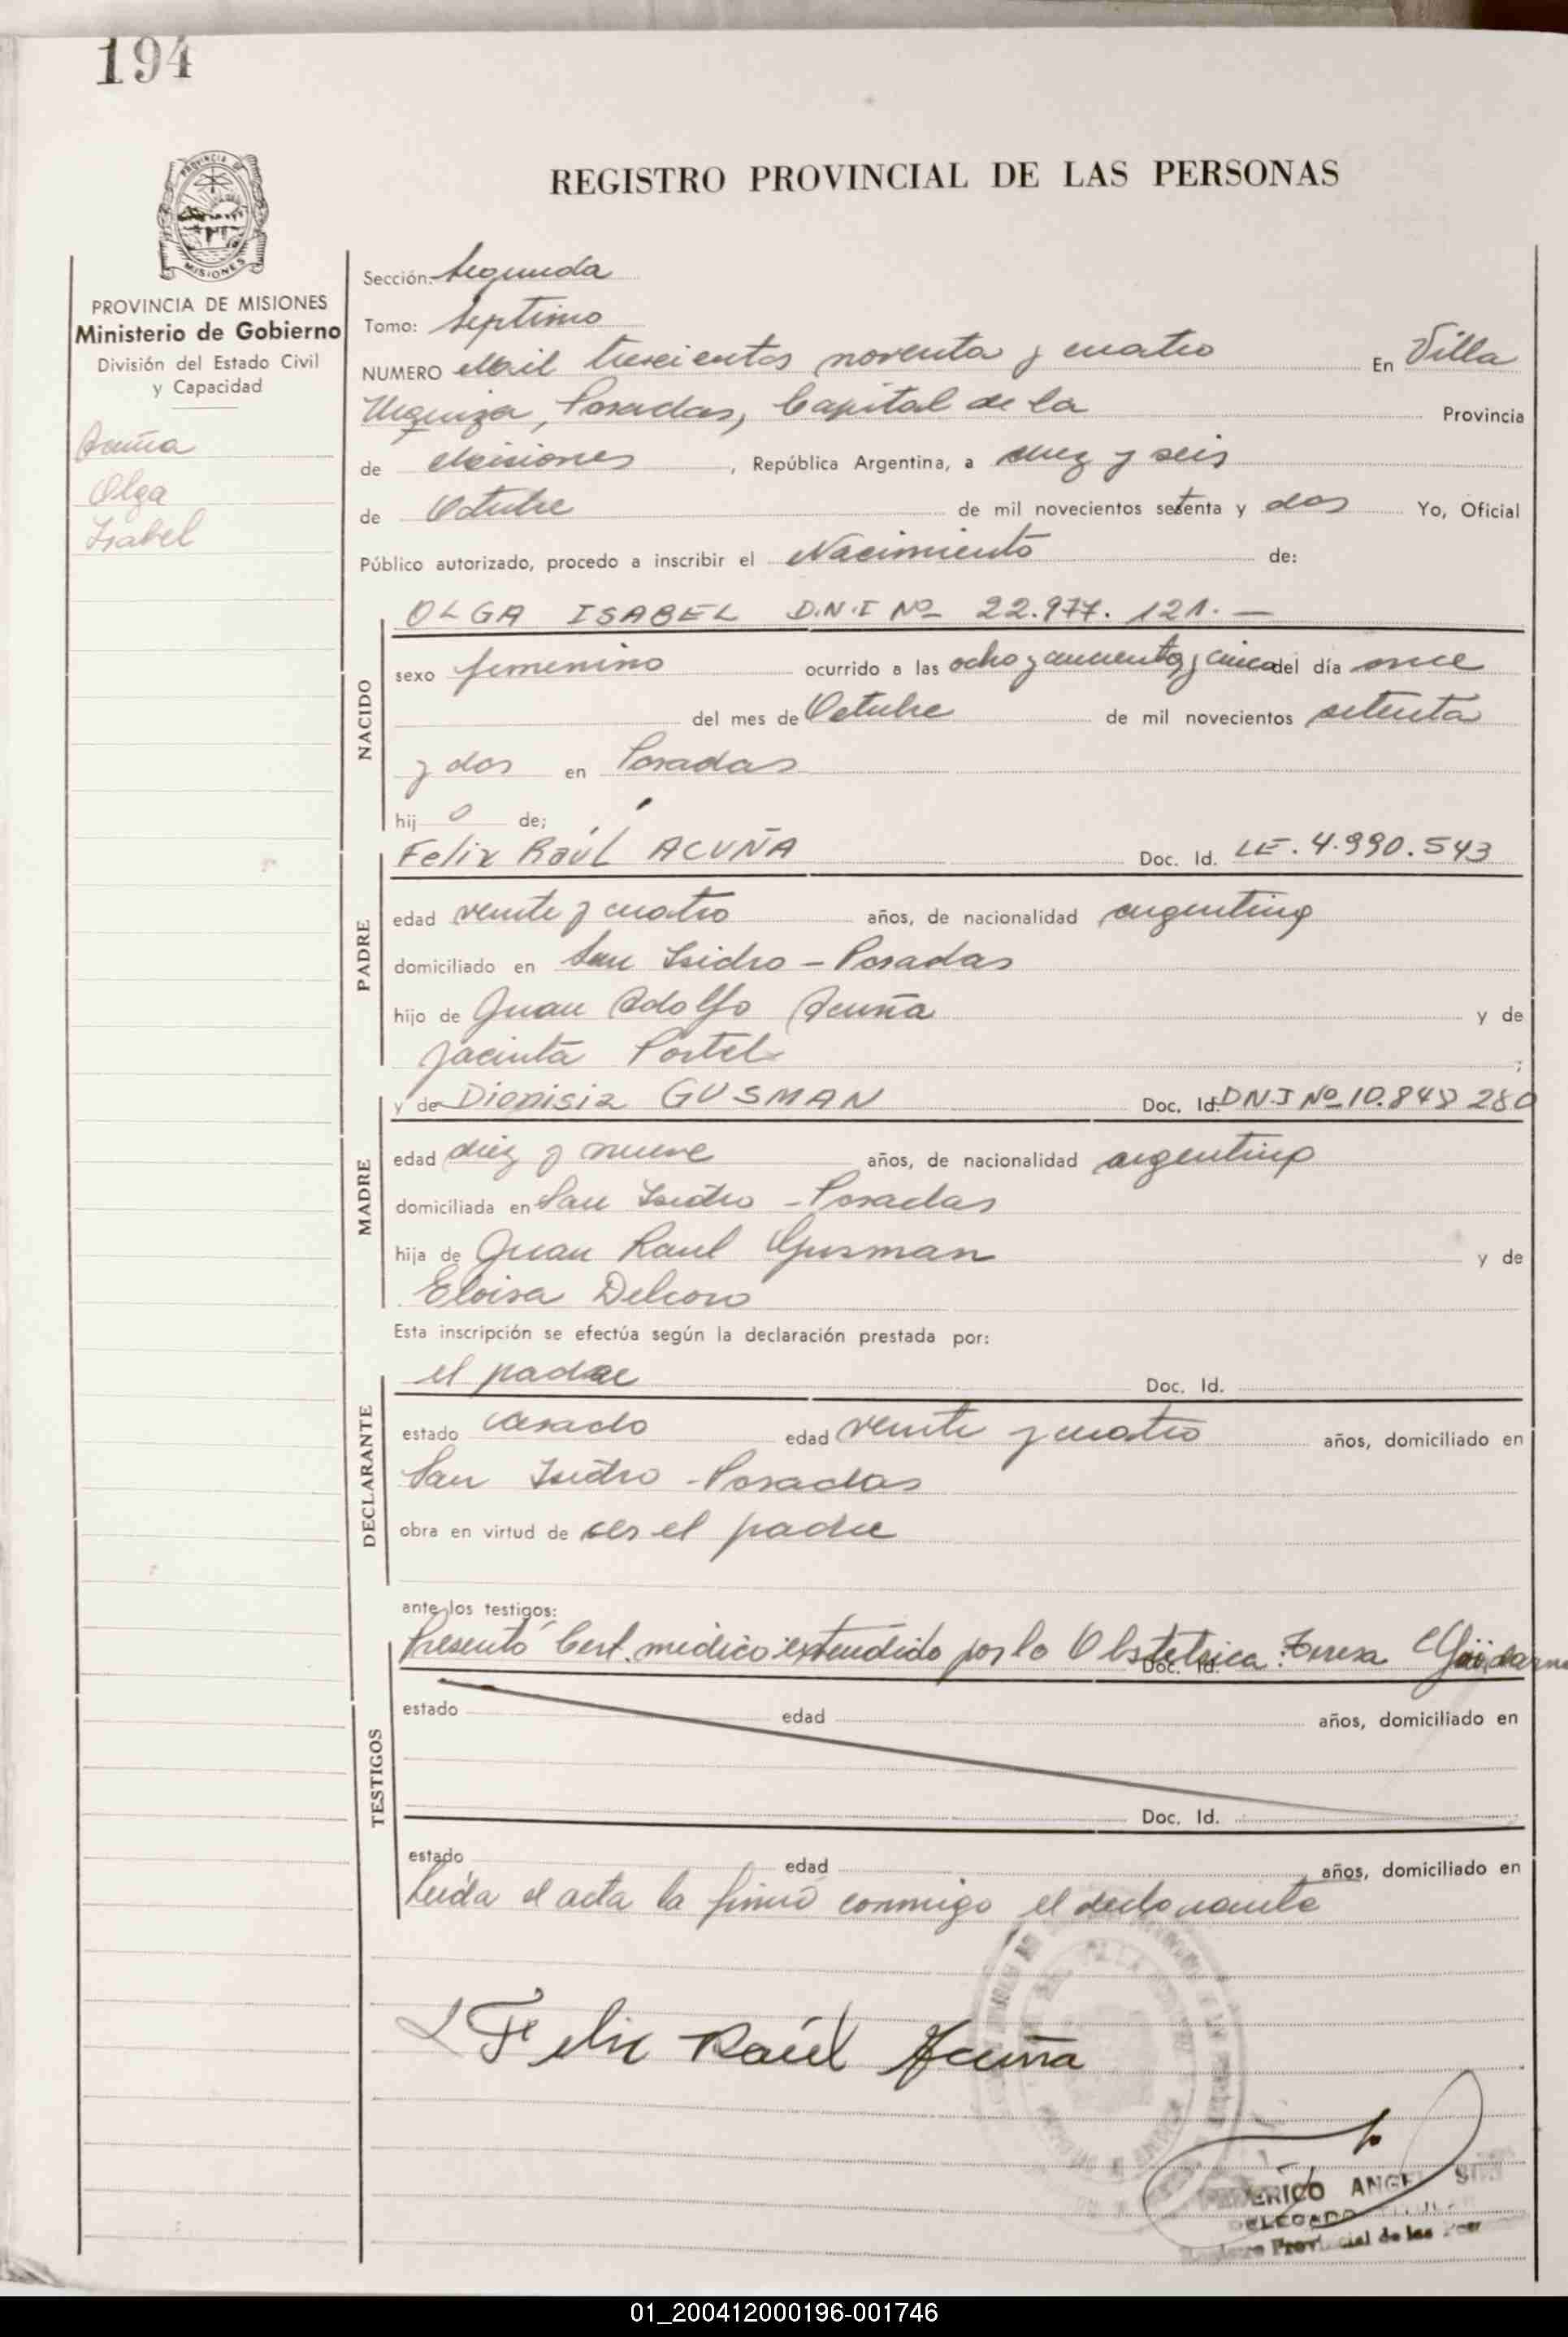 194
PROVINCIA DE
MISIONES
REGISTRO PROVINCIAL DE LAS PERSONAS
PROVINCIA DE MISIONES
Ministerio de Gobierno
División del Estado Civil
y Capacidad
Acuña
Olga
Isabel
Sección: Segunda
Tomo: Septimo
NUMERO Mil trescientos noventa y cuatro En Villa
Urquiza, Posadas, Capital de la Provincia
de Misiones, República Argentina, a diez y seis
de Octubre de mil novecientos setenta y dos Yo, Oficial
Público autorizado, procedo a inscribir el Nacimiento de:
OLGA ISABEL D.N.I Nº 22.977.121.—
NACIDO
sexo femenino ocurrido a las ocho y cincuenta y cinco del día once
del mes de Octubre de mil novecientos setenta
y dos en Posadas
hij o de;
Felix Raúl ACUÑA Doc. Id. LE. 4.990.543
PADRE
edad veinte y cuatro años, de nacionalidad argentina
domiciliado en San Isidro - Posadas
hijo de Juan Adolfo Acuña y de
Jacinta Portel ;
y de Dionisia GUSMAN Doc. Id. DNI Nº 10.848 280
MADRE
edad diez y nueve años, de nacionalidad argentina
domiciliada en San Isidro - Posadas
hija de Juan Raul Gusman y de
Eloisa
Esta inscripción se efectúa según la declaración prestada por:
el padre Doc. Id.
DECLARANTE
estado casado edad veinte y cuatro años, domiciliado en
San Isidro - Posadas
obra en virtud de ser el padre
ante los testigos:
Presentó Cert. medico extendido por la Obstetrica: Teresa
Doc. Id.
TESTIGOS
estado edad años, domiciliado en
Doc. Id.
estado edad años, domiciliado en
Leida el acta la firmó conmigo el declarante
Felix Raúl Acuña
ANGEL
DELEGADO
Provincial de las
01_200412000196-001746